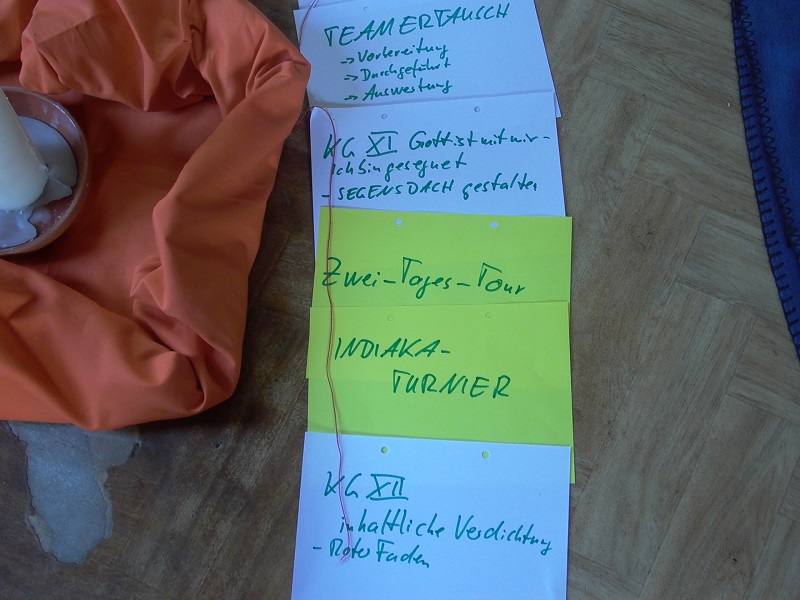 TEAMERTAUSCH
→ Vorbereitung
→ Durchgeführt
→ Auswertung
KG XI Gott ist mit mir-
Ich bin gesegnet
- SEGENSDACH gestalten
Zwei-Tages-Tour
INDIAKA-
TURNIER
KG XII
inhaltliche Verdichtung
- Roter Faden